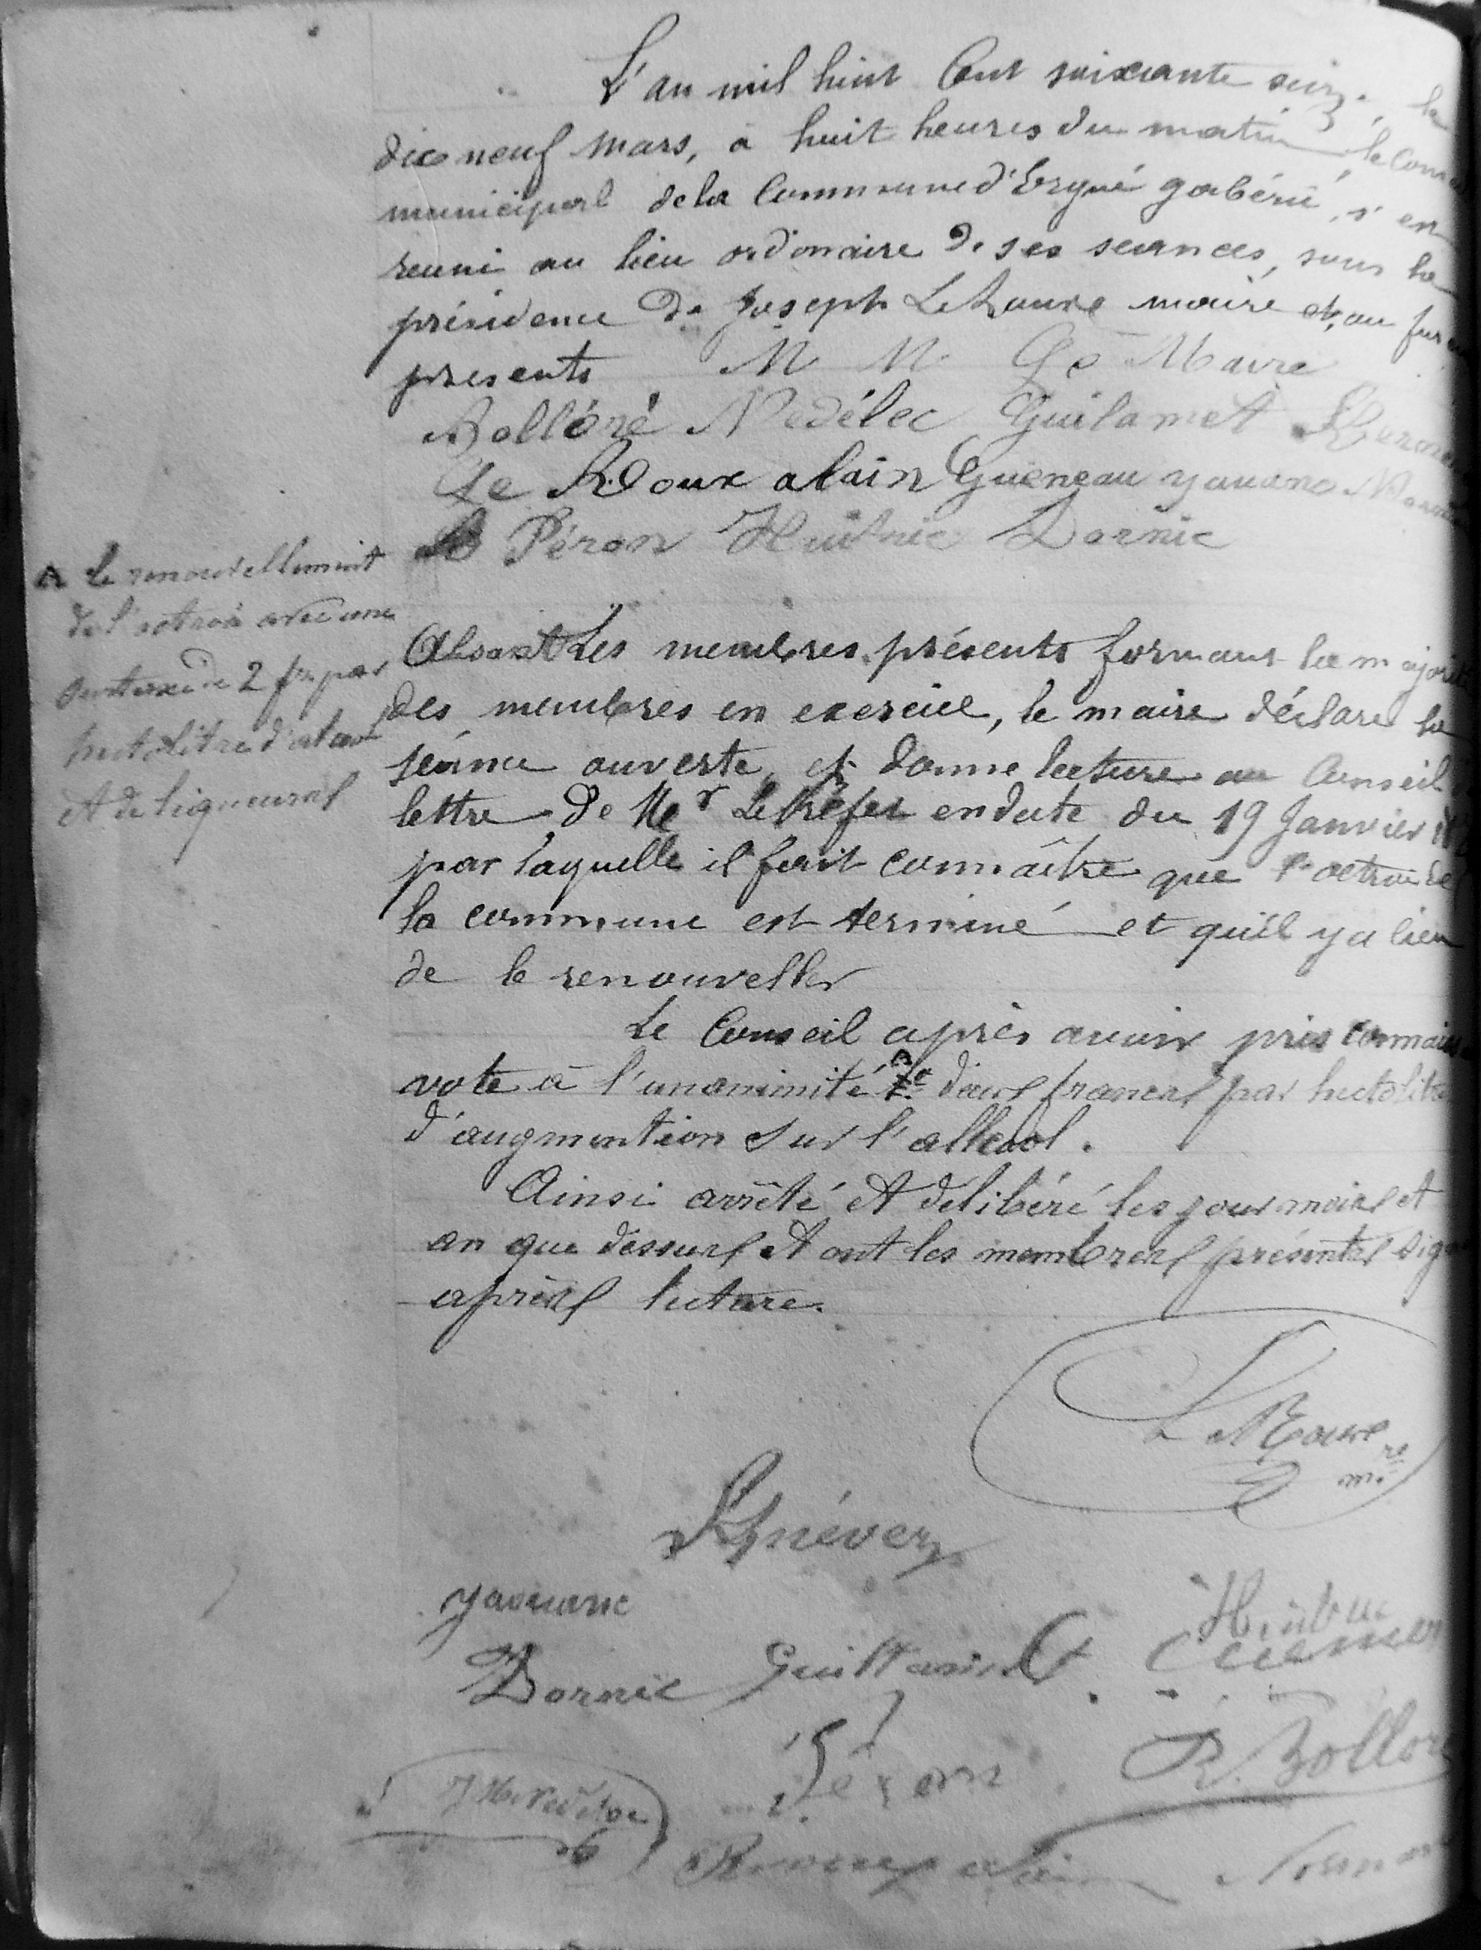 L'an mil huit Cent soixante seize, le
dix neuf mars, à huit heures du matin, le Cons
municipal de la Commune d'Ergué gabéric, s'en
reuni au lieu ordinaire de ses seances, sous la
présidence de Joseph Le maire et au fur
presents M M Le Maire
Bolloré Nédélec Guilamet
Le Roux alain Guéneau yaouanc
Péron Huitric Dornic
Absent Les membres présents formant la majorit
des membres en exercice, le maire déclare la
séance ouverte, et donne lecture au Conseil
lettre de Mr Le Préfet en date du 19 Janvier
par laquelle il fait connaître que l'octroi de
la commune est terminé et qu'il y a lieu
de le renouveller
Le Conseil après avoir pris connais
vote à l'unanimité deux francs par hectolitre
d'augmention sur l'allcool.
Ainsi arrêté et délibéré les jour mois et
an que dessus et ont les membres présents sign
après lecture.
le renouvellement
de l'octroi avec une
surtaxe de 2 fr par
hectolitre d'alcool
et de liqueurs
re
m.
yaouanc
Huitric
Dornic Guillamet
Péron R. Bollor
alain